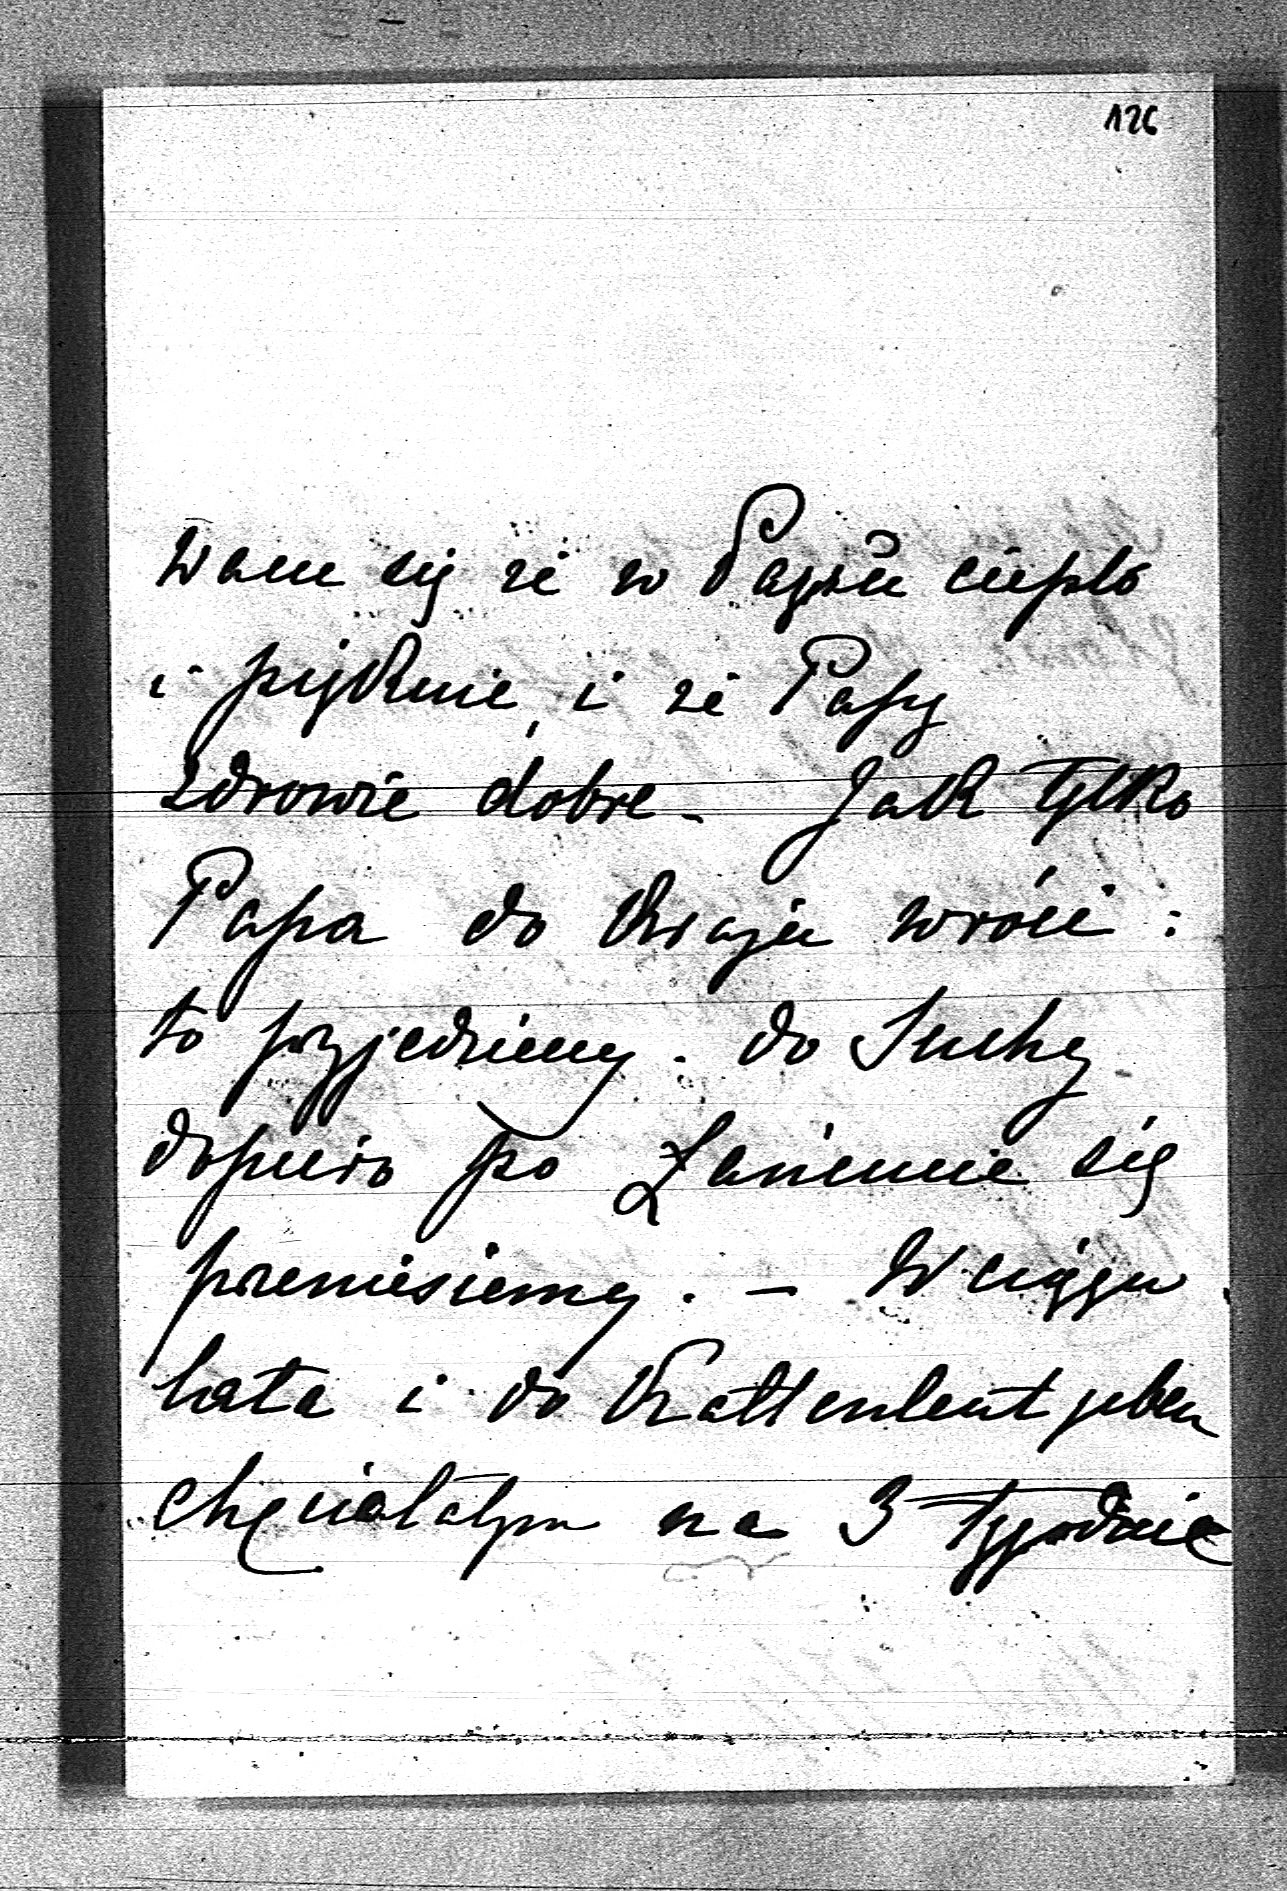 126
wam się że w Paryżu ciepło
i pięknie, i że Papy
zdrowie dobre - Jak tylko
Papa do Kraju wróci :
to przyjedziemy. do Suchy
dopiero po
się
przeniesiemy. - W ciągu
lata i do Kaltenleutgeben
chciałabym na 3 tygodnie